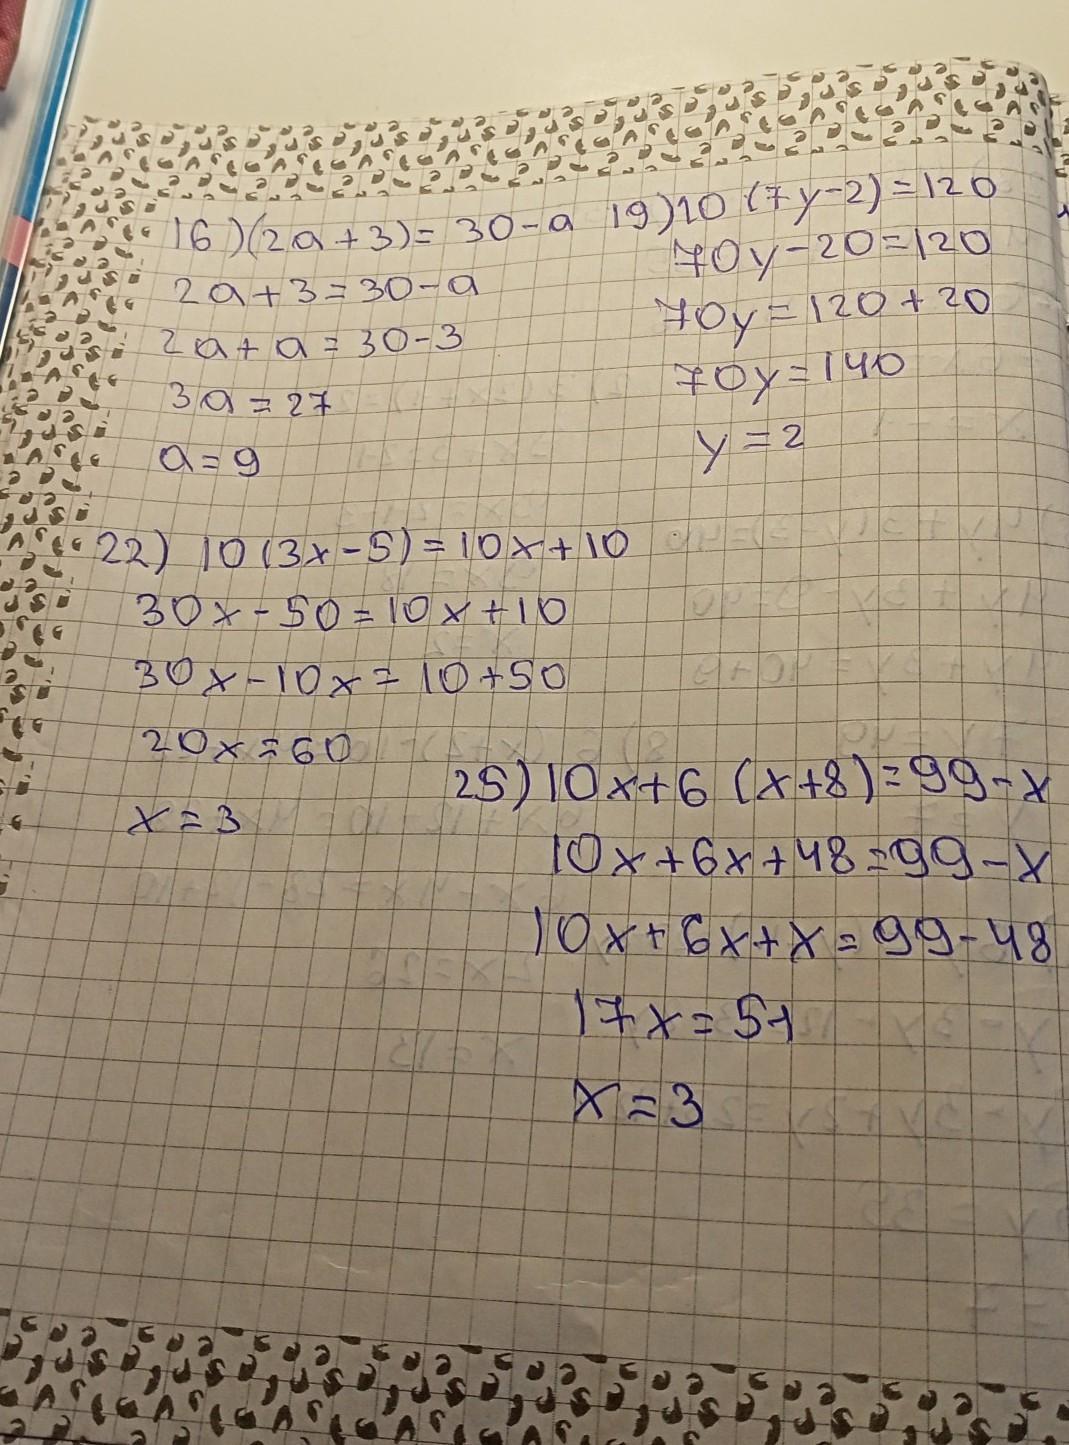 16)(2a+3)=30-a
2a+3=30-a
2a+a=30-3
3a=27
a=9
19)10(7y-2)=120
70y-20=120
70y=120+20
70y=140
y=2
22) 10(3x-5)=10x+10
30x-50=10x+10
30x-10x=10+50
20x=60
x=3
25)10x+6(x+8)=99-x
10x+6x+48=99-x
10x+6x+x=99-48
17x=51
x=3